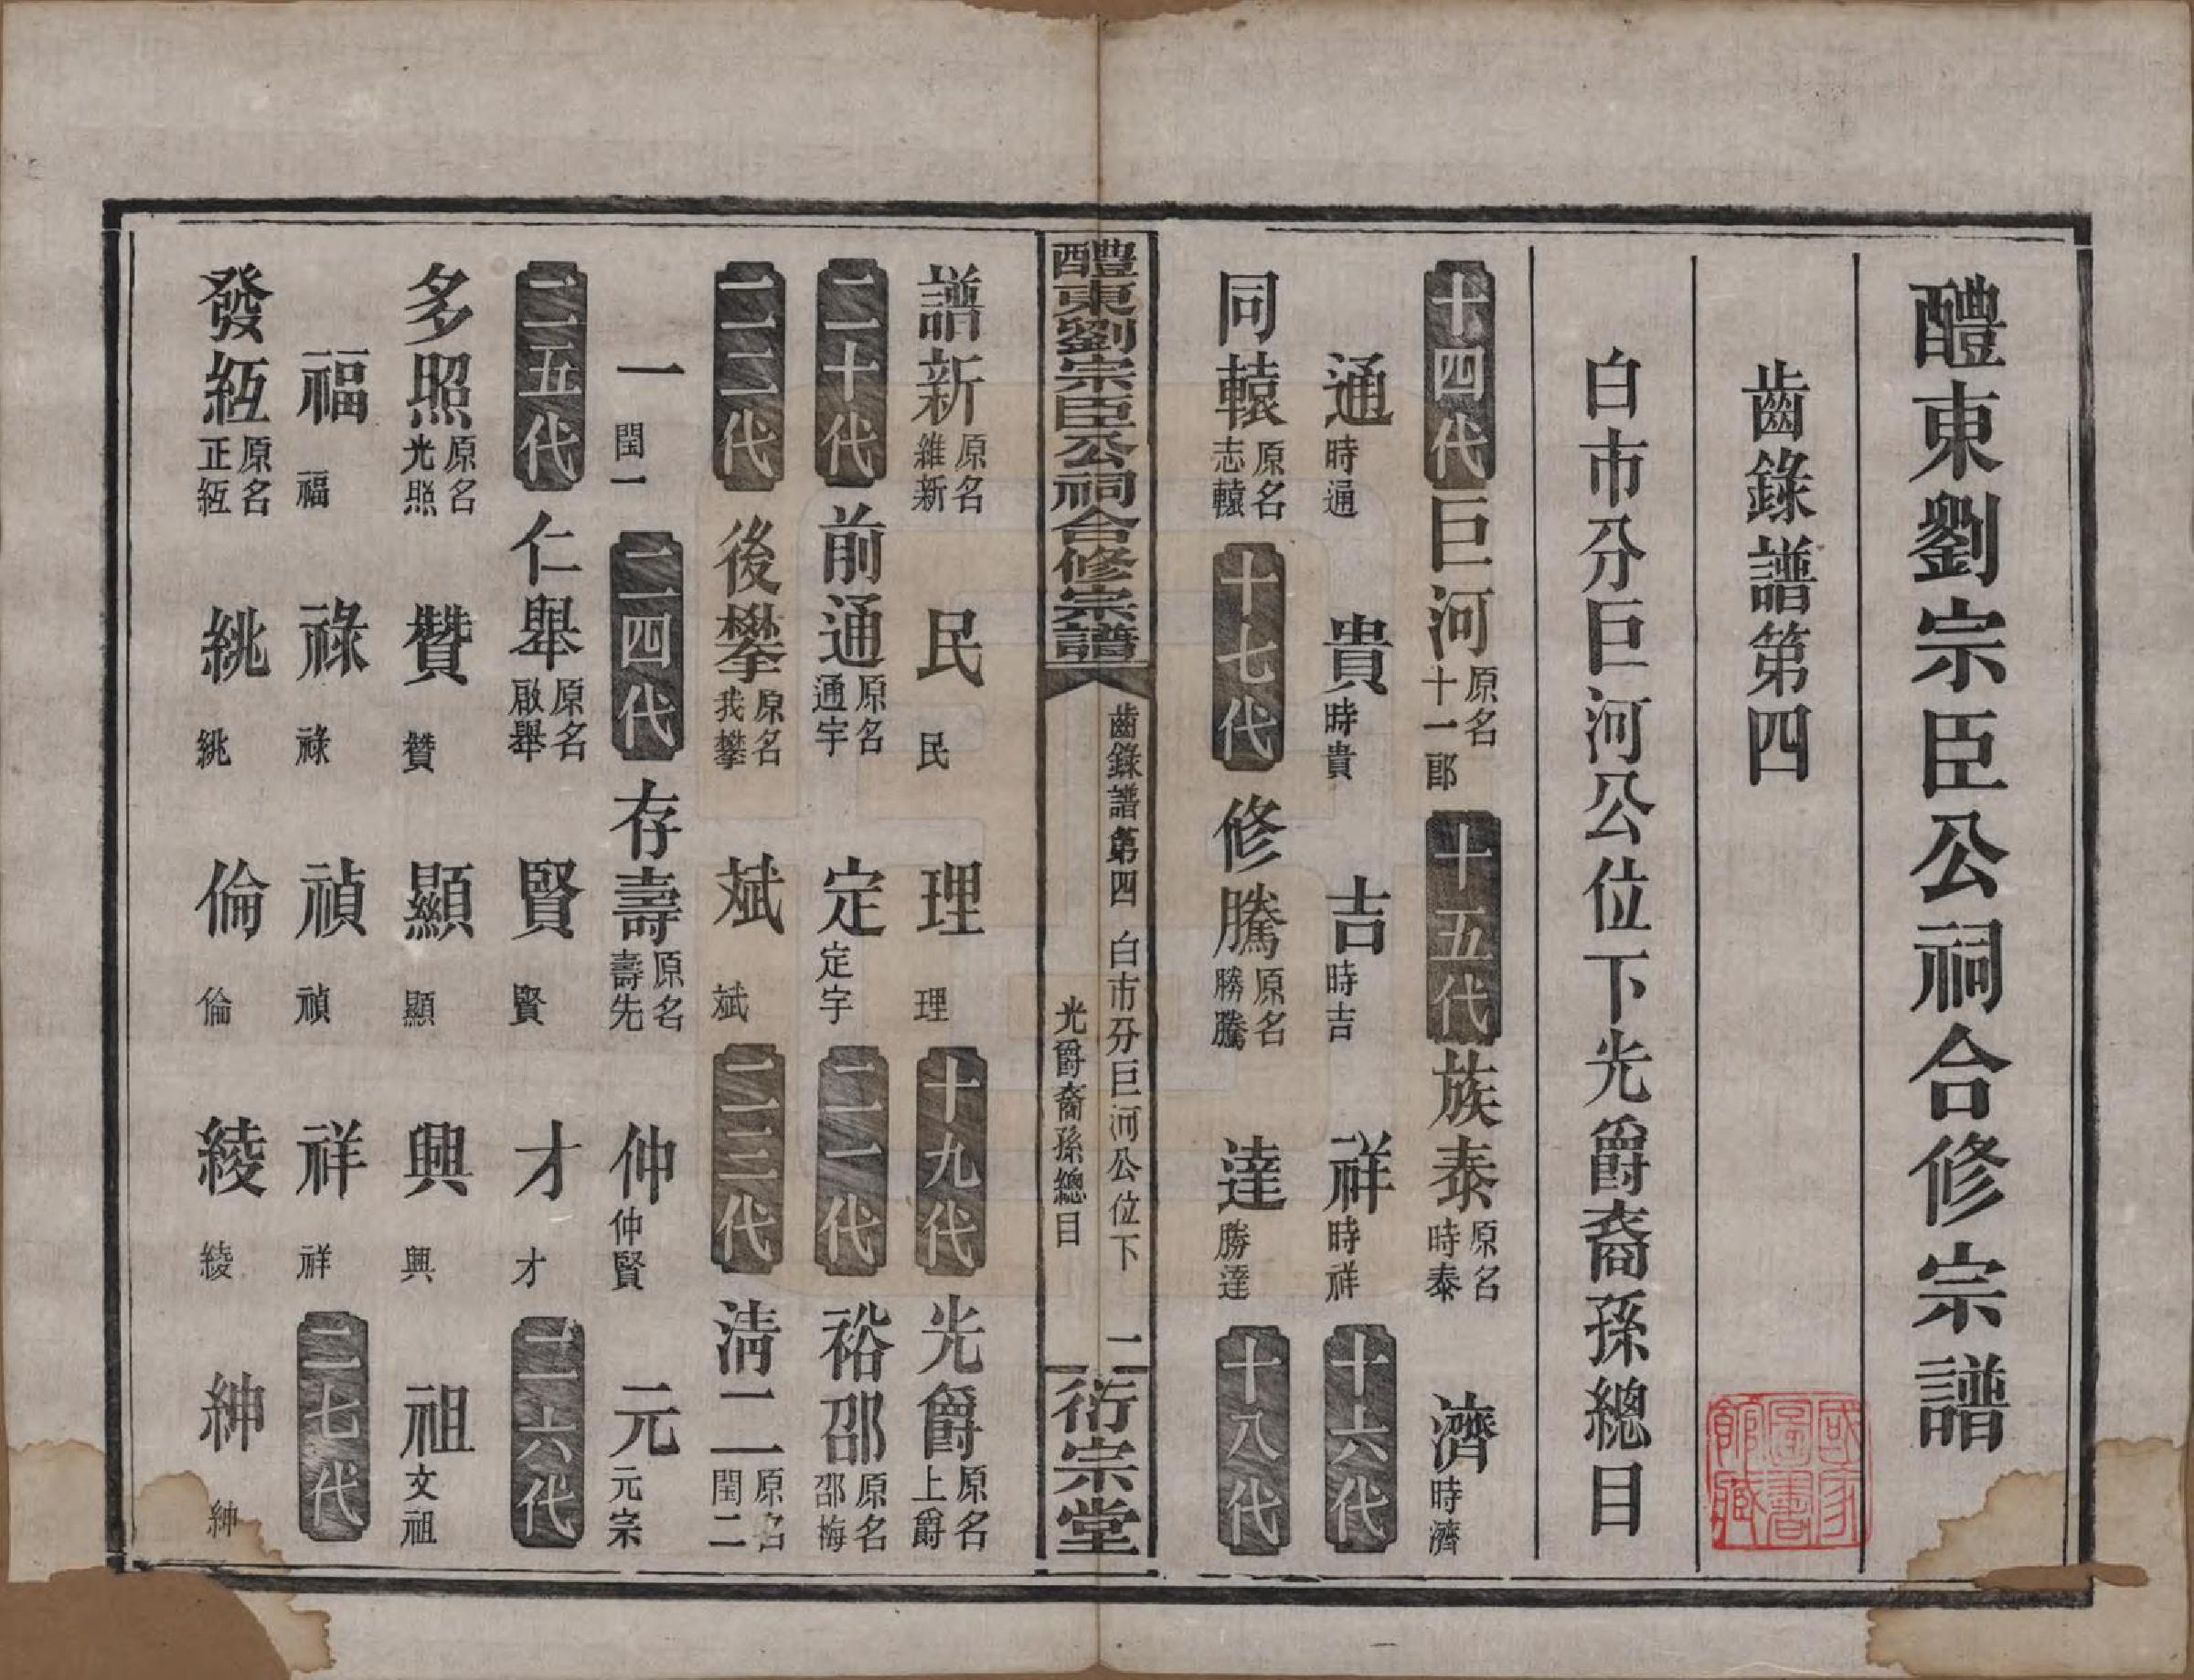 醴東劉宗臣公祠合修宗譜
齒錄譜第四
國家圖書館藏
白市分巨河公位下光爵裔孫總目
十四代 巨河 原名十一郎 十五代 族泰 原名時泰 濟 時濟
通 時通 貴 時貴 吉 時吉 祥 時祥 十六代
同轅 原名志轅 十七代 修騰 原名勝騰 達 勝達 十八代
醴東劉宗臣公祠合修宗譜 齒錄譜第四 白市分巨河公位下 光爵裔孫總目 一 衍宗堂
譜新 原名維新 民 民 理 理 十九代 光爵 原名上爵
二十代 前通 原名通宇 定 定宇 二一代 裕邵 原名邵梅
二二代 後攀 原名我攀 斌 斌 二三代 清二 原名閏二
一 閏一 二四代 存壽 原名壽先 仲 仲賢 元 元宗
二五代 仁舉 原名啟舉 賢 賢 才 才 二六代
多照 原名光照 贊 贊 顯 顯 興 興 祖 文祖
福 福 祿 祿 禎 禎 祥 祥 二七代
發絚 原名正絚 絩 絩 倫 倫 綾 綾 紳 紳